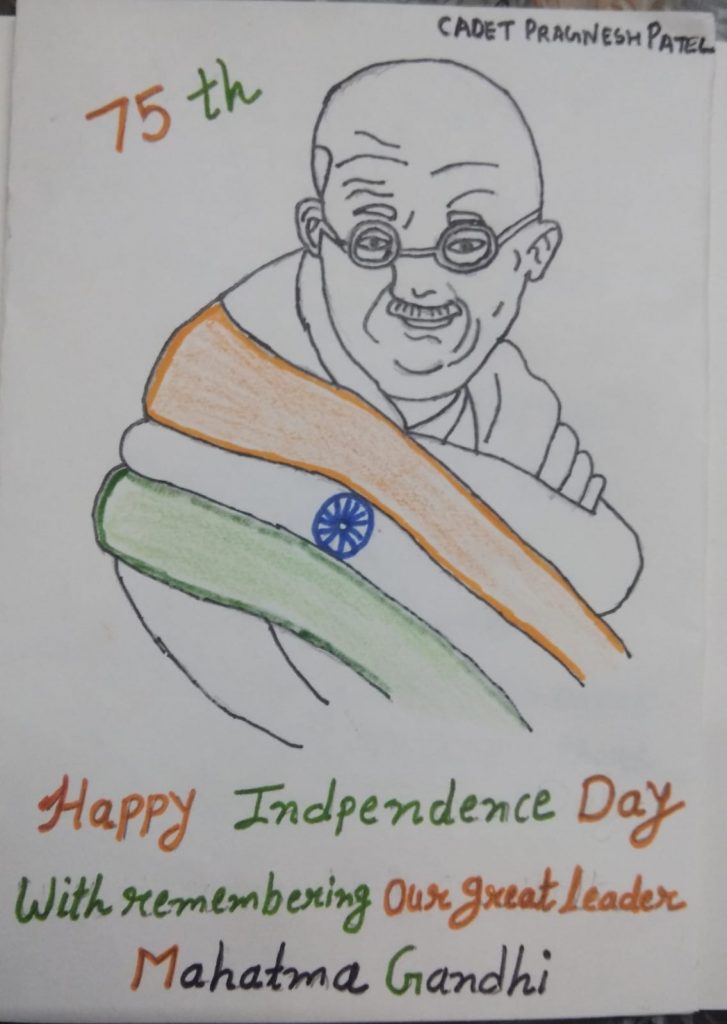 CADET PRAGNESH PATEL
75th
Happy Indpendence Day
With remembering Our great Leader
Mahatma Gandhi